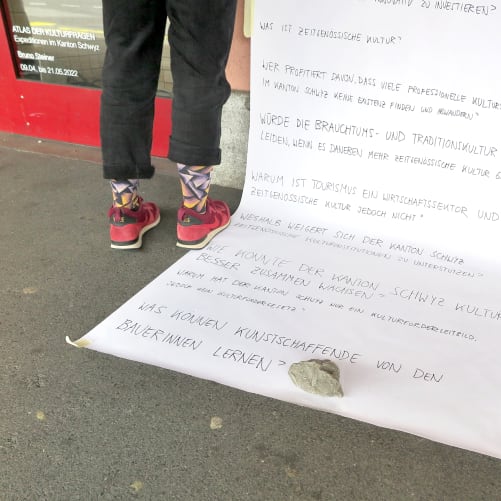 ATLAS DER KULTURFRAGEN
Expeditionen im Kanton Schwyz
Bruno Steiner
09.04. bis 21.05.2022
ZU INVESTIEREN?
WAS IST ZEITGENÖSSISCHE KULTUR?
WER PROFITIERT DAVON, DASS VIELE PROFESSIONELLE KULTURS
IM KANTON SCHWYZ KEINE EXISTENZ FINDEN UND ABWANDERN?
WÜRDE DIE BRAUCHTUMS- UND TRADITIONSKULTUR
LEIDEN, WENN ES DANEBEN MEHR ZEITGENÖSSISCHE KULTUR G
WARUM IST TOURISMUS EIN WIRTSCHAFTSSEKTOR UND
ZEITGENÖSSISCHE KULTUR JEDOCH NICHT?
WESHALB WEIGERT SICH DER KANTON SCHWYZ
ZEITGENÖSSISCHE KULTURINSTITUTIONEN ZU UNTERSTÜTZEN?
WIE KÖNNTE DER KANTON SCHWYZ KULTUR
BESSER ZUSAMMEN WACHSEN?
WARUM HAT DER KANTON SCHWYZ NUR EIN KULTURFÖRDERLEITBILD,
JEDOCH KEIN KULTURFÖRDERGESETZ?
WAS KÖNNEN KUNSTSCHAFFENDE VON DEN
BAUERINNEN LERNEN?